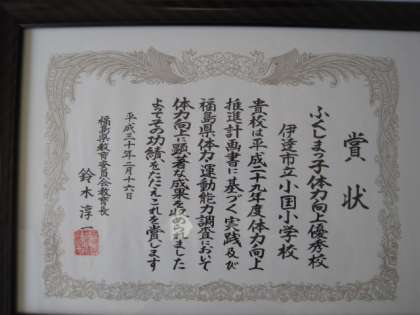 賞状
ふくしまっ子体力向上優秀校
伊達市立小国小学校
貴校は平成二十九年度体力向上
推進計画書に基づく実践及び
福島県体力運動能力調査において
体力向上に顕著な成果を収められました
よってその功績をたたえこれを賞します
平成三十年二月十六日
福島県教育委員会教育長
鈴木淳一